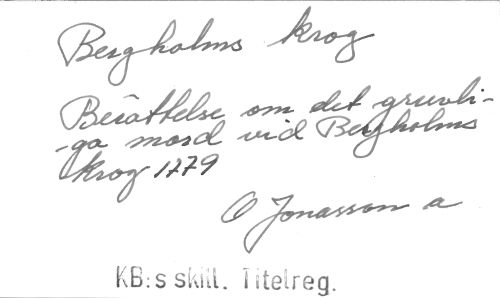 Bergholms krog
Berättelse om det gruvli-
-ga mord vid Bergholms
krog 1779
O Jonasson a
KB:s skill. Titelreg.